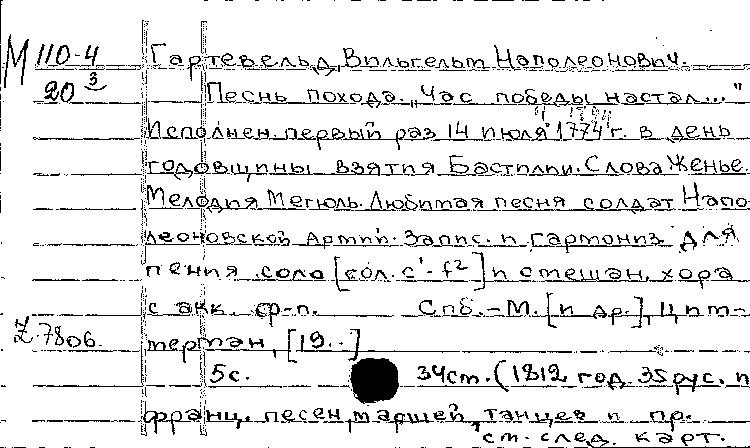 М 110-4 Гартевельд, Вильгельм Наполеонович.
20 3 Песнь похода. „Час победы настал..."
Исполнен. первый раз 14 июля 1774 г. в день
годовщины взятия Бастилии. Слова Женье.
Мелодия Мегюль. Любимая песня солдат Напо
леоновской Армии. Запис. и гармониз. для
пения соло [сол. c¹-f²] и смешан. хора
с акк. ф-п. Спб. - М. [и др.], Цим-
Z.7806. мерман, [19..]
5 с. 34 см. (1812 год. 35 рус. и
франц. песен, маршей, танцев и пр.
см. след. карт.